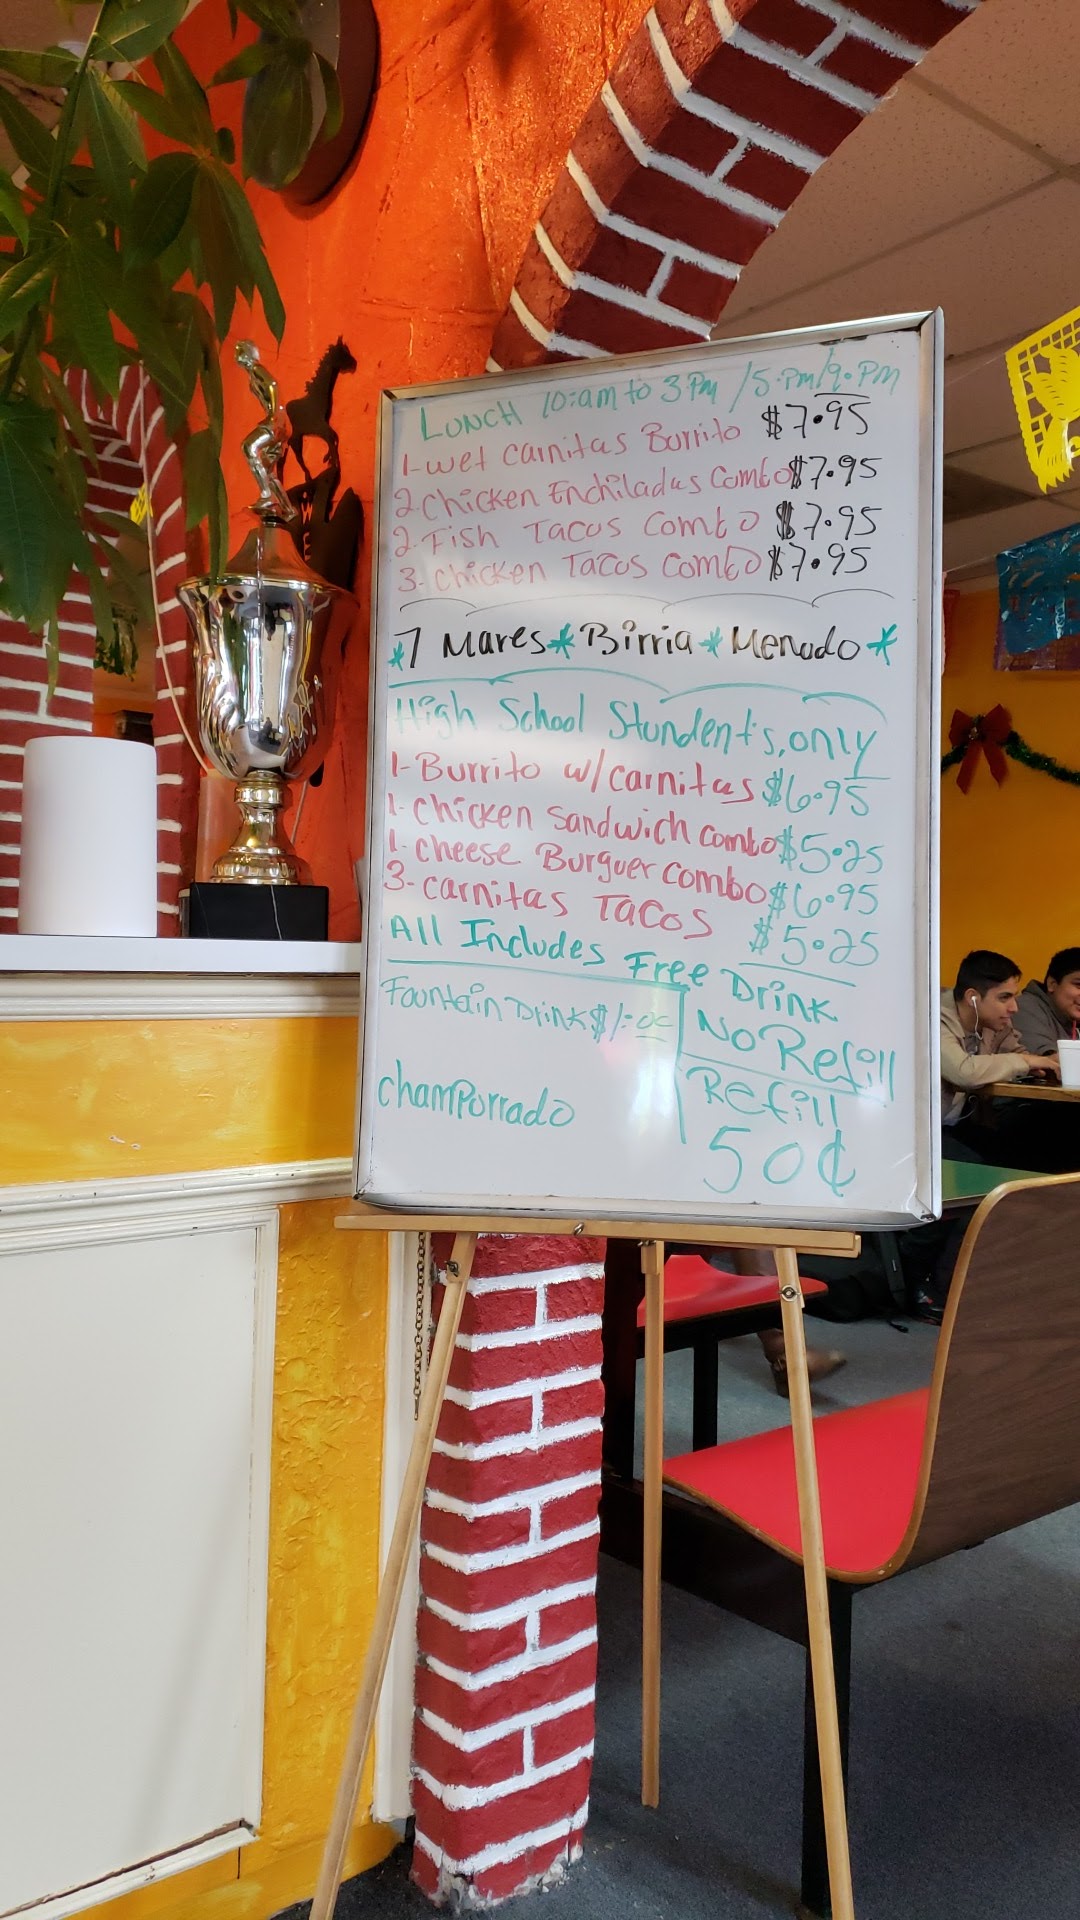 LUNCH 10:am to 3 Pm / 5.Pm/9.PM
1-wet carnitas Burrito $7.95
2.Chicken Enchiladas Combo $7.95
2.Fish Tacos Combo $7.95
3-chicken Tacos Combo $7.95
*7 Mares * Birria * Menudo *
High School Stundent's, only
1-Burrito w/carnitas $6.95
1-chicken sandwich combo $5.25
1-cheese Burguer combo $6.95
3-carnitas Tacos $5.25
All Includes Free Drink
Fountain Drink $1.00
No Refill
champorrado
Refill
50¢